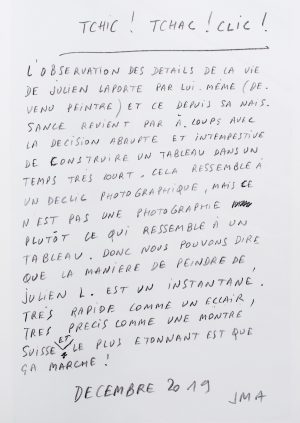 TCHIC ! TCHAC ! CLIC !
L'OBSERVATION DES DETAILS DE LA VIE
DE JULIEN LAPORTE PAR LUI-MÊME (DE-
VENU PEINTRE) ET CE DEPUIS SA NAIS-
SANCE REVIENT PAR À-COUPS AVEC
LA DECISION ABRUPTE ET INTEMPESTIVE
DE CONSTRUIRE UN TABLEAU DANS UN
TEMPS TRÈS COURT. CELA RESSEMBLE À
UN DECLIC PHOTOGRAPHIQUE, MAIS CE
N'EST PAS UNE PHOTOGRAPHIE
PLUTÔT CE QUI RESSEMBLE À UN
TABLEAU. DONC NOUS POUVONS DIRE
QUE LA MANIERE DE PEINDRE DE
JULIEN L. EST UN INSTANTANÉ.
TRÈS RAPIDE COMME UN ECLAIR,
TRES PRECIS COMME UNE MONTRE
SUISSE ET LE PLUS ETONNANT EST QUE
ÇA MARCHE !
DECEMBRE 2019
JMA